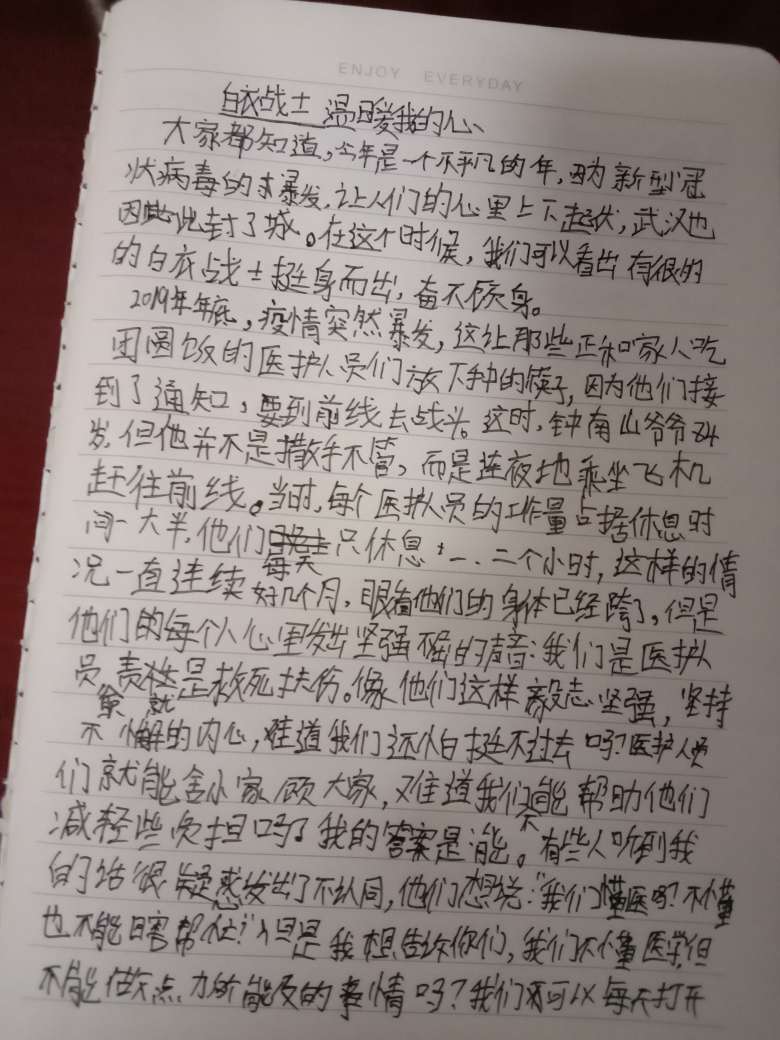 ENJOY EVERYDAY
白衣战士 温暖我的心
大家都知道，今年是一个不平凡的年，因为新型冠
状病毒的暴发，让人们的心里上下起伏，武汉也
因此封了城。在这个时候，我们可以看出有很的
的白衣战士挺身而出，奋不顾身。
2019年年底，疫情突然暴发，这让那些正和家人吃
团圆饭的医护人员们放下手中的筷子，因为他们接
到了通知，要到前线去战斗。这时，钟南山爷爷84
岁，但他并不是撒手不管，而是连夜地乘坐飞机
赶往前线。当时，每个医护人员的工作量占据休息时
间一大半，他们每天只休息一、二个小时，这样的情
况一直连续好几个月，眼看他们的身体已经跨了，但是
他们的每个人心里发出坚强不屈的声音：我们是医护人
员，责任就是救死扶伤。像他们这样毅志坚强，坚持
不懈的内心，难道我们还怕挺不过去吗？医护人员
们就能舍小家顾大家，难道我们不能帮助他们
减轻些负担吗？我的答案是能。有些人听到我
的话很疑惑发出了不认同，他们想说："我们懂医吗？不懂
也不能瞎帮忙？"但是我想告诉你们，我们不懂医学但
不能做点力所能及的事情吗？我们可以每天打开